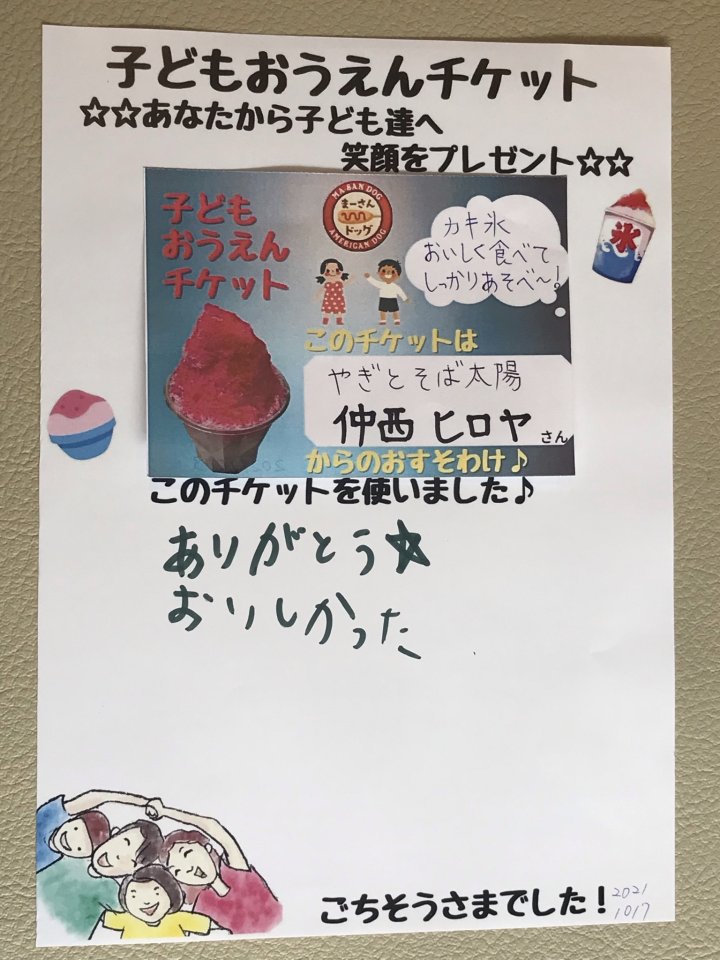 子どもおうえんチケット
☆☆あなたから子ども達へ
笑顔をプレゼント☆☆
子ども
おうえん
チケット
MA SAN DOG
まーさん
ドッグ
AMERICAN DOG
カキ氷
おいしく食べて
しっかりあそべ〜!
氷
このチケットは
やぎとそば太陽
仲西 ヒロヤ さん
からのおすそわけ♪
このチケットを使いました♪
ありがとう☆
おいしかった
ごちそうさまでした!
2021
1017